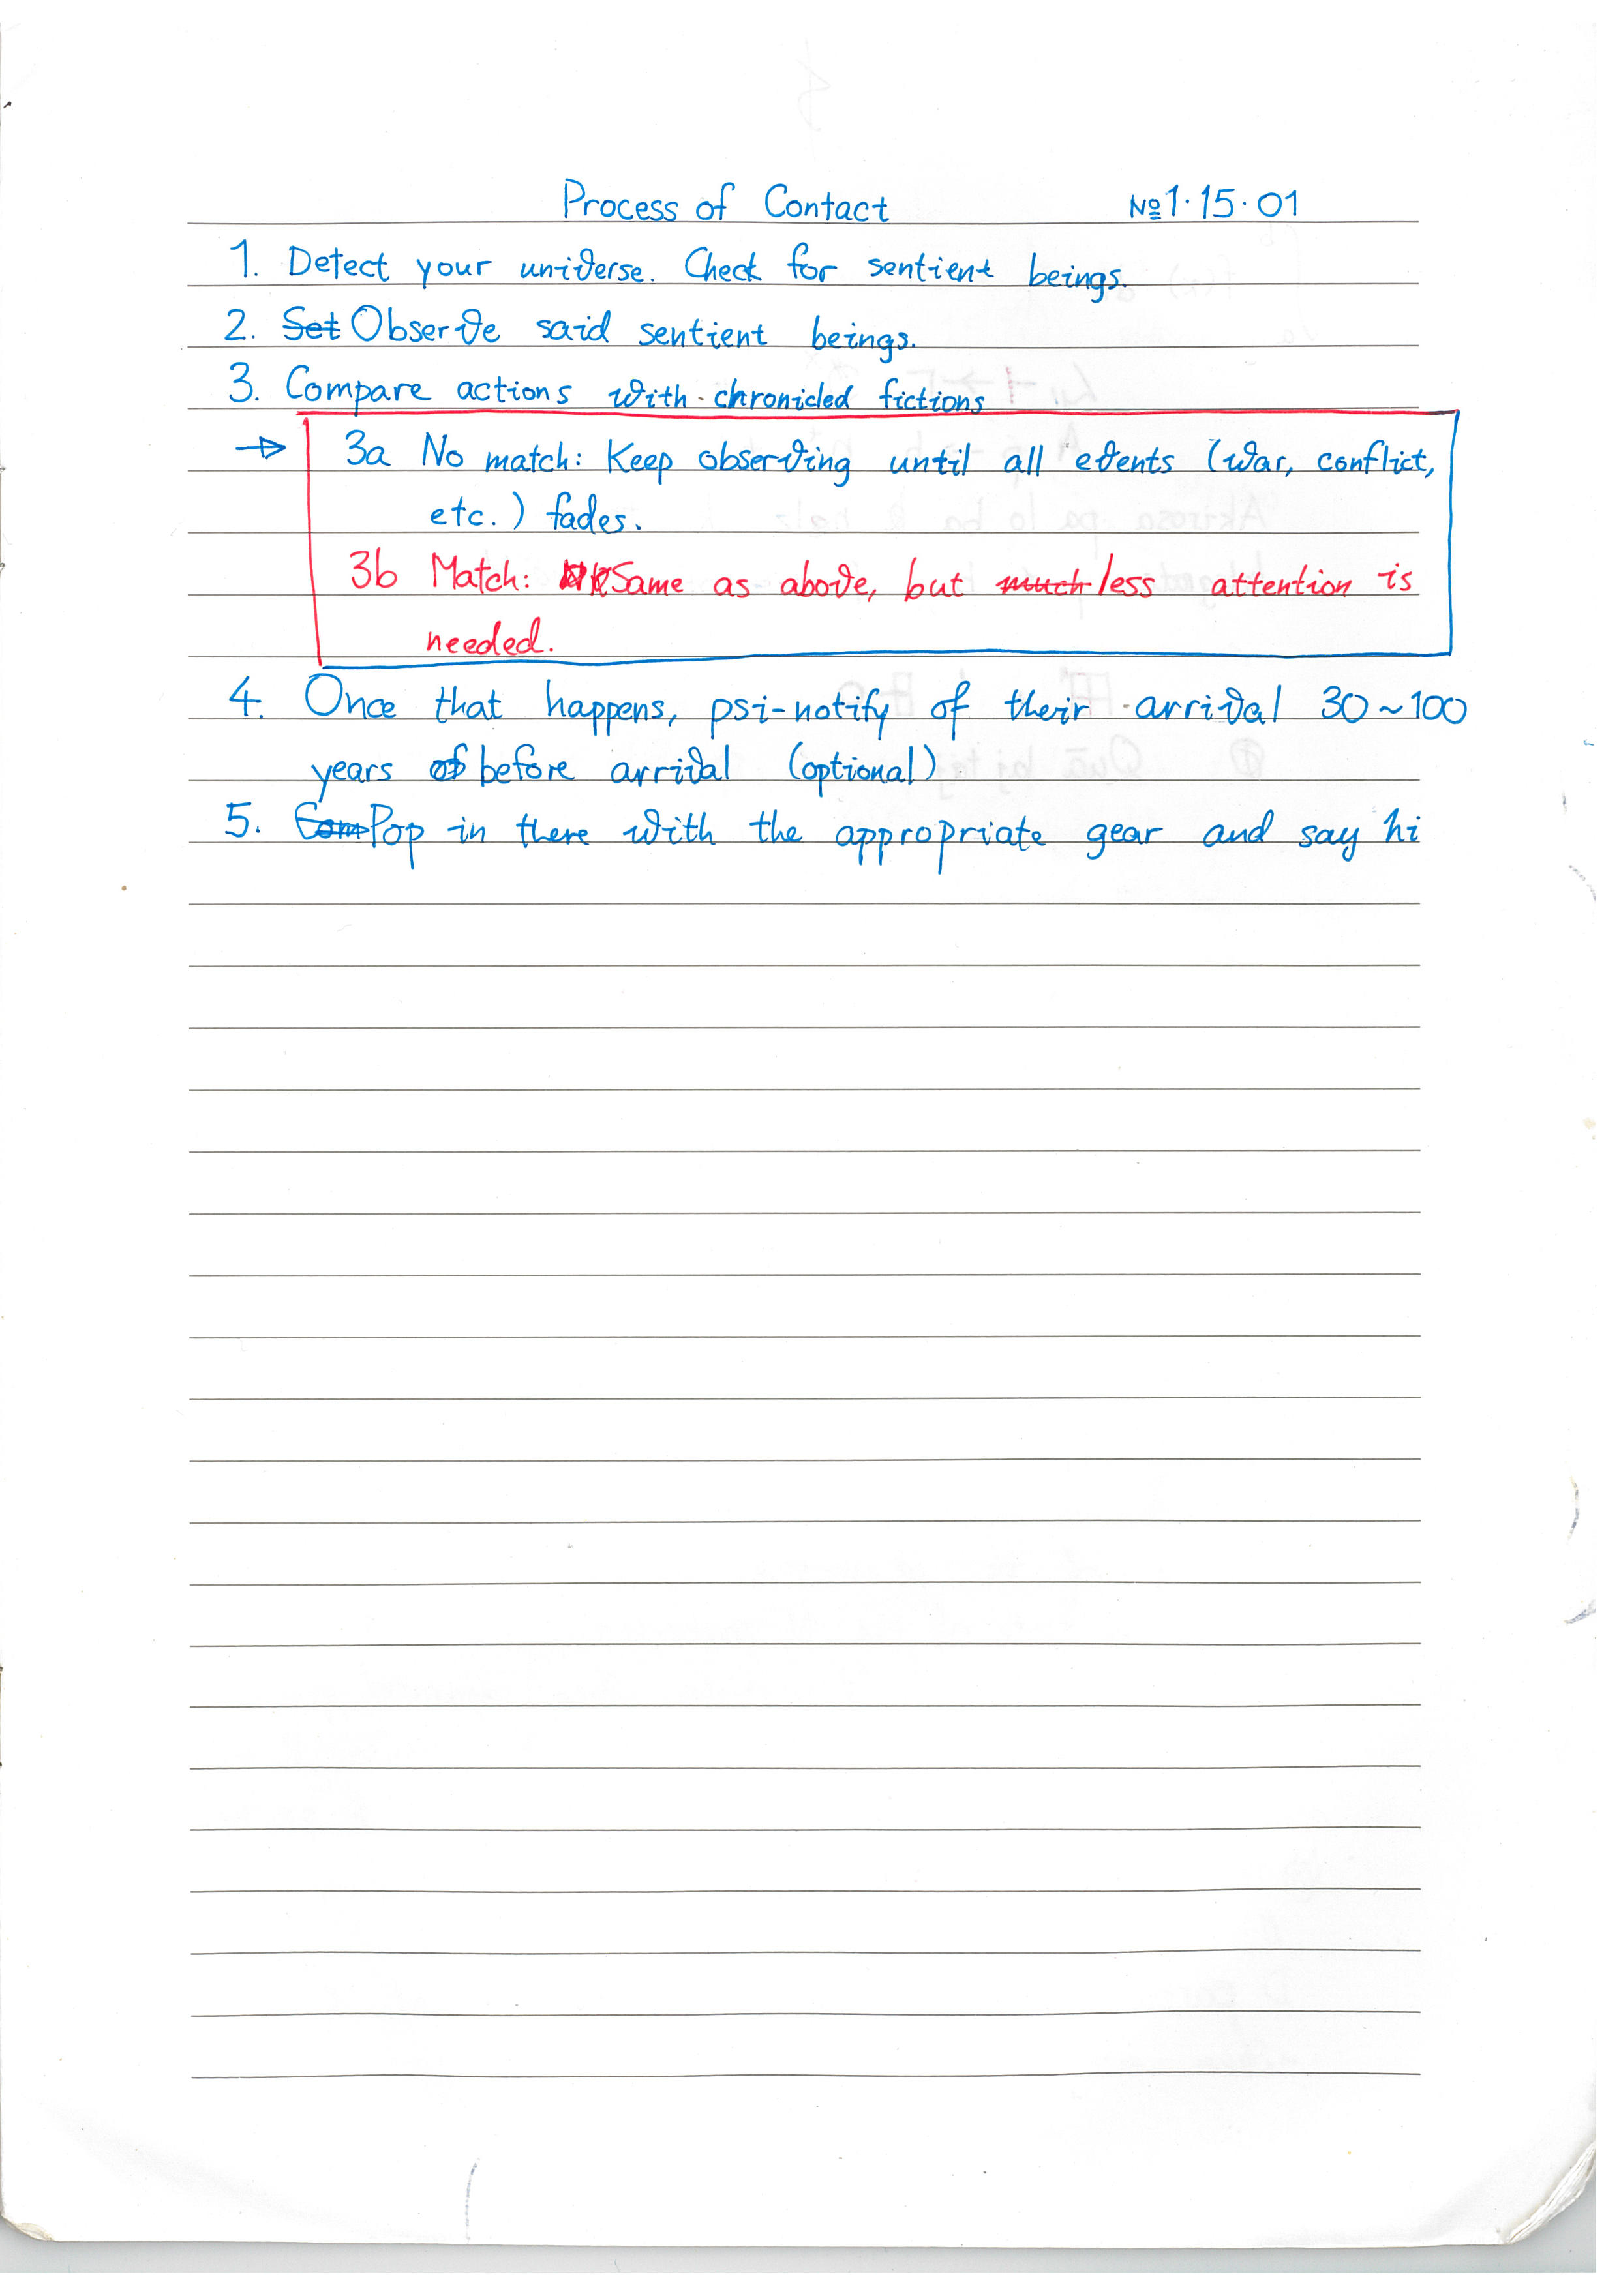 Process of Contact №1·15·01
1. Detect your universe. Check for sentient beings.
2. Set Observe said sentient beings.
3. Compare actions with chronicled fictions
→ 3a No match: Keep observing until all events (war, conflict,
etc.) fades.
3b Match: Same as above, but much less attention is
needed.
4. Once that happens, psi-notify of their arrival 30~100
years of before arrival (optional)
5. Com Pop in there with the appropriate gear and say hi